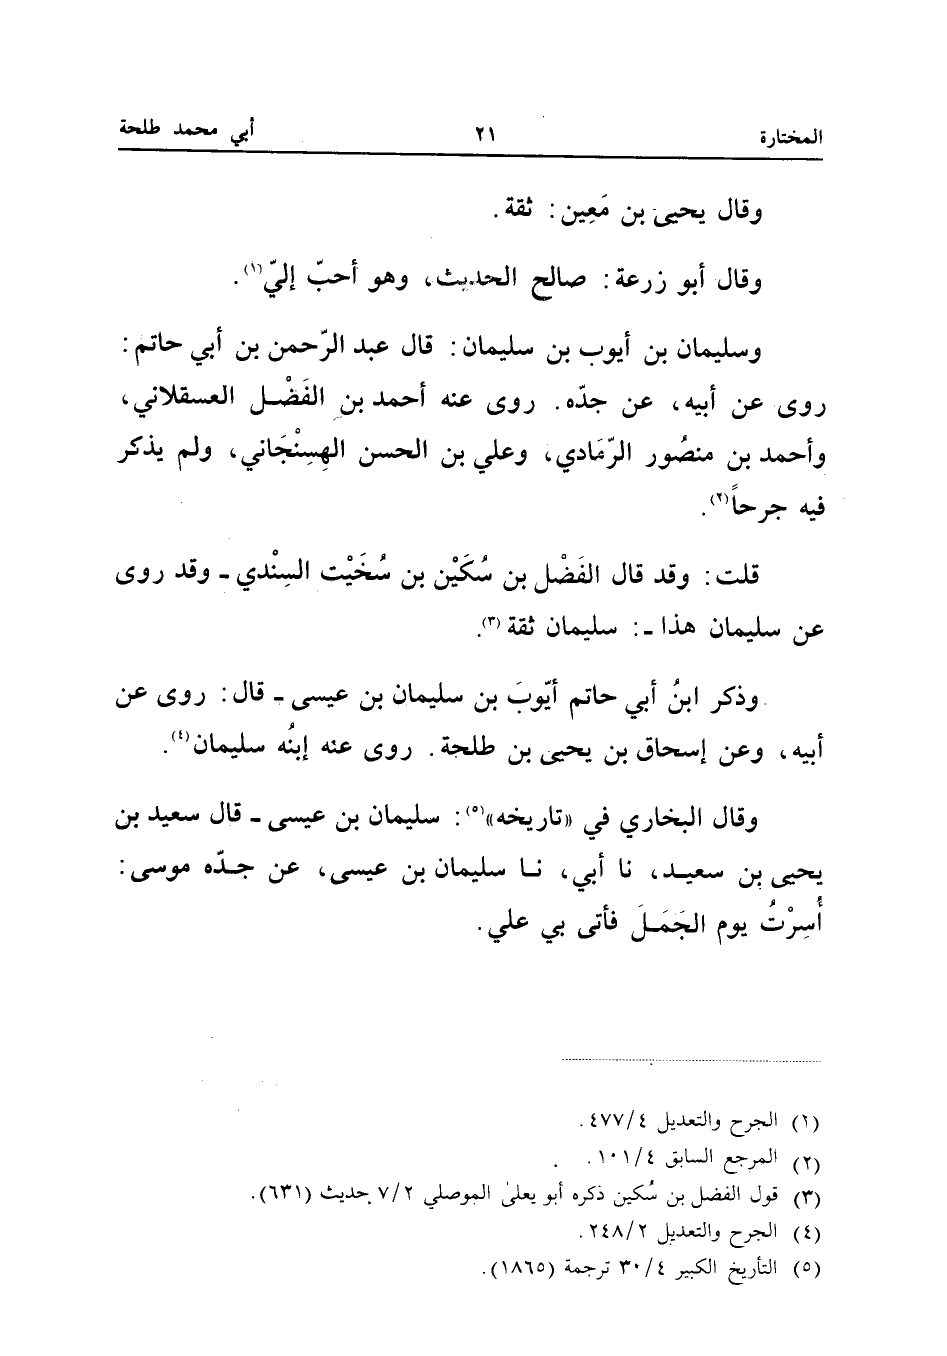 المختارة ٢١ أبي محمد طلحة
وقال يحيى بن مَعِين: ثقة.
وقال أبو زرعة: صالح الحديث، وهو أحبّ إليّ(١).
وسليمان بن أيوب بن سليمان: قال عبد الرّحمن بن أبي حاتم:
روى عن أبيه، عن جدّه. روى عنه أحمد بن الفَضْل العسقلاني،
وأحمد بن منصُور الرّمَادي، وعلي بن الحسن الهِسِنْجَاني، ولم يذكر
فيه جرحاً(٢).
قلت: وقد قال الفَضْل بن سُكَيْن بن سُخَيْت السِنْدي ـ وقد روى
عن سليمان هذا ـ: سليمان ثقة(٣).
وذكر ابنُ أبي حاتم أيّوبَ بن سليمان بن عيسى ـ قال: روى عن
أبيه، وعن إسحاق بن يحيى بن طلحة. روى عنه إبنُه سليمان(٤).
وقال البخاري في «تاريخه»(٥): سليمان بن عيسى ـ قال سعيد بن
يحيى بن سعيد، نا أبي، نا سليمان بن عيسى، عن جدّه موسى:
أُسِرْتُ يوم الجَمَلَ فأتى بي علي.
(١) الجرح والتعديل ٤/ ٤٧٧.
(٢) المرجع السابق ٤/ ١٠١.
(٣) قول الفضل بن سُكين ذكره أبو يعلىٰ الموصلي ٢/ ٧ حديث (٦٣١).
(٤) الجرح والتعديل ٢/ ٢٤٨.
(٥) التأريخ الكبير ٤/ ٣٠ ترجمة (١٨٦٥).